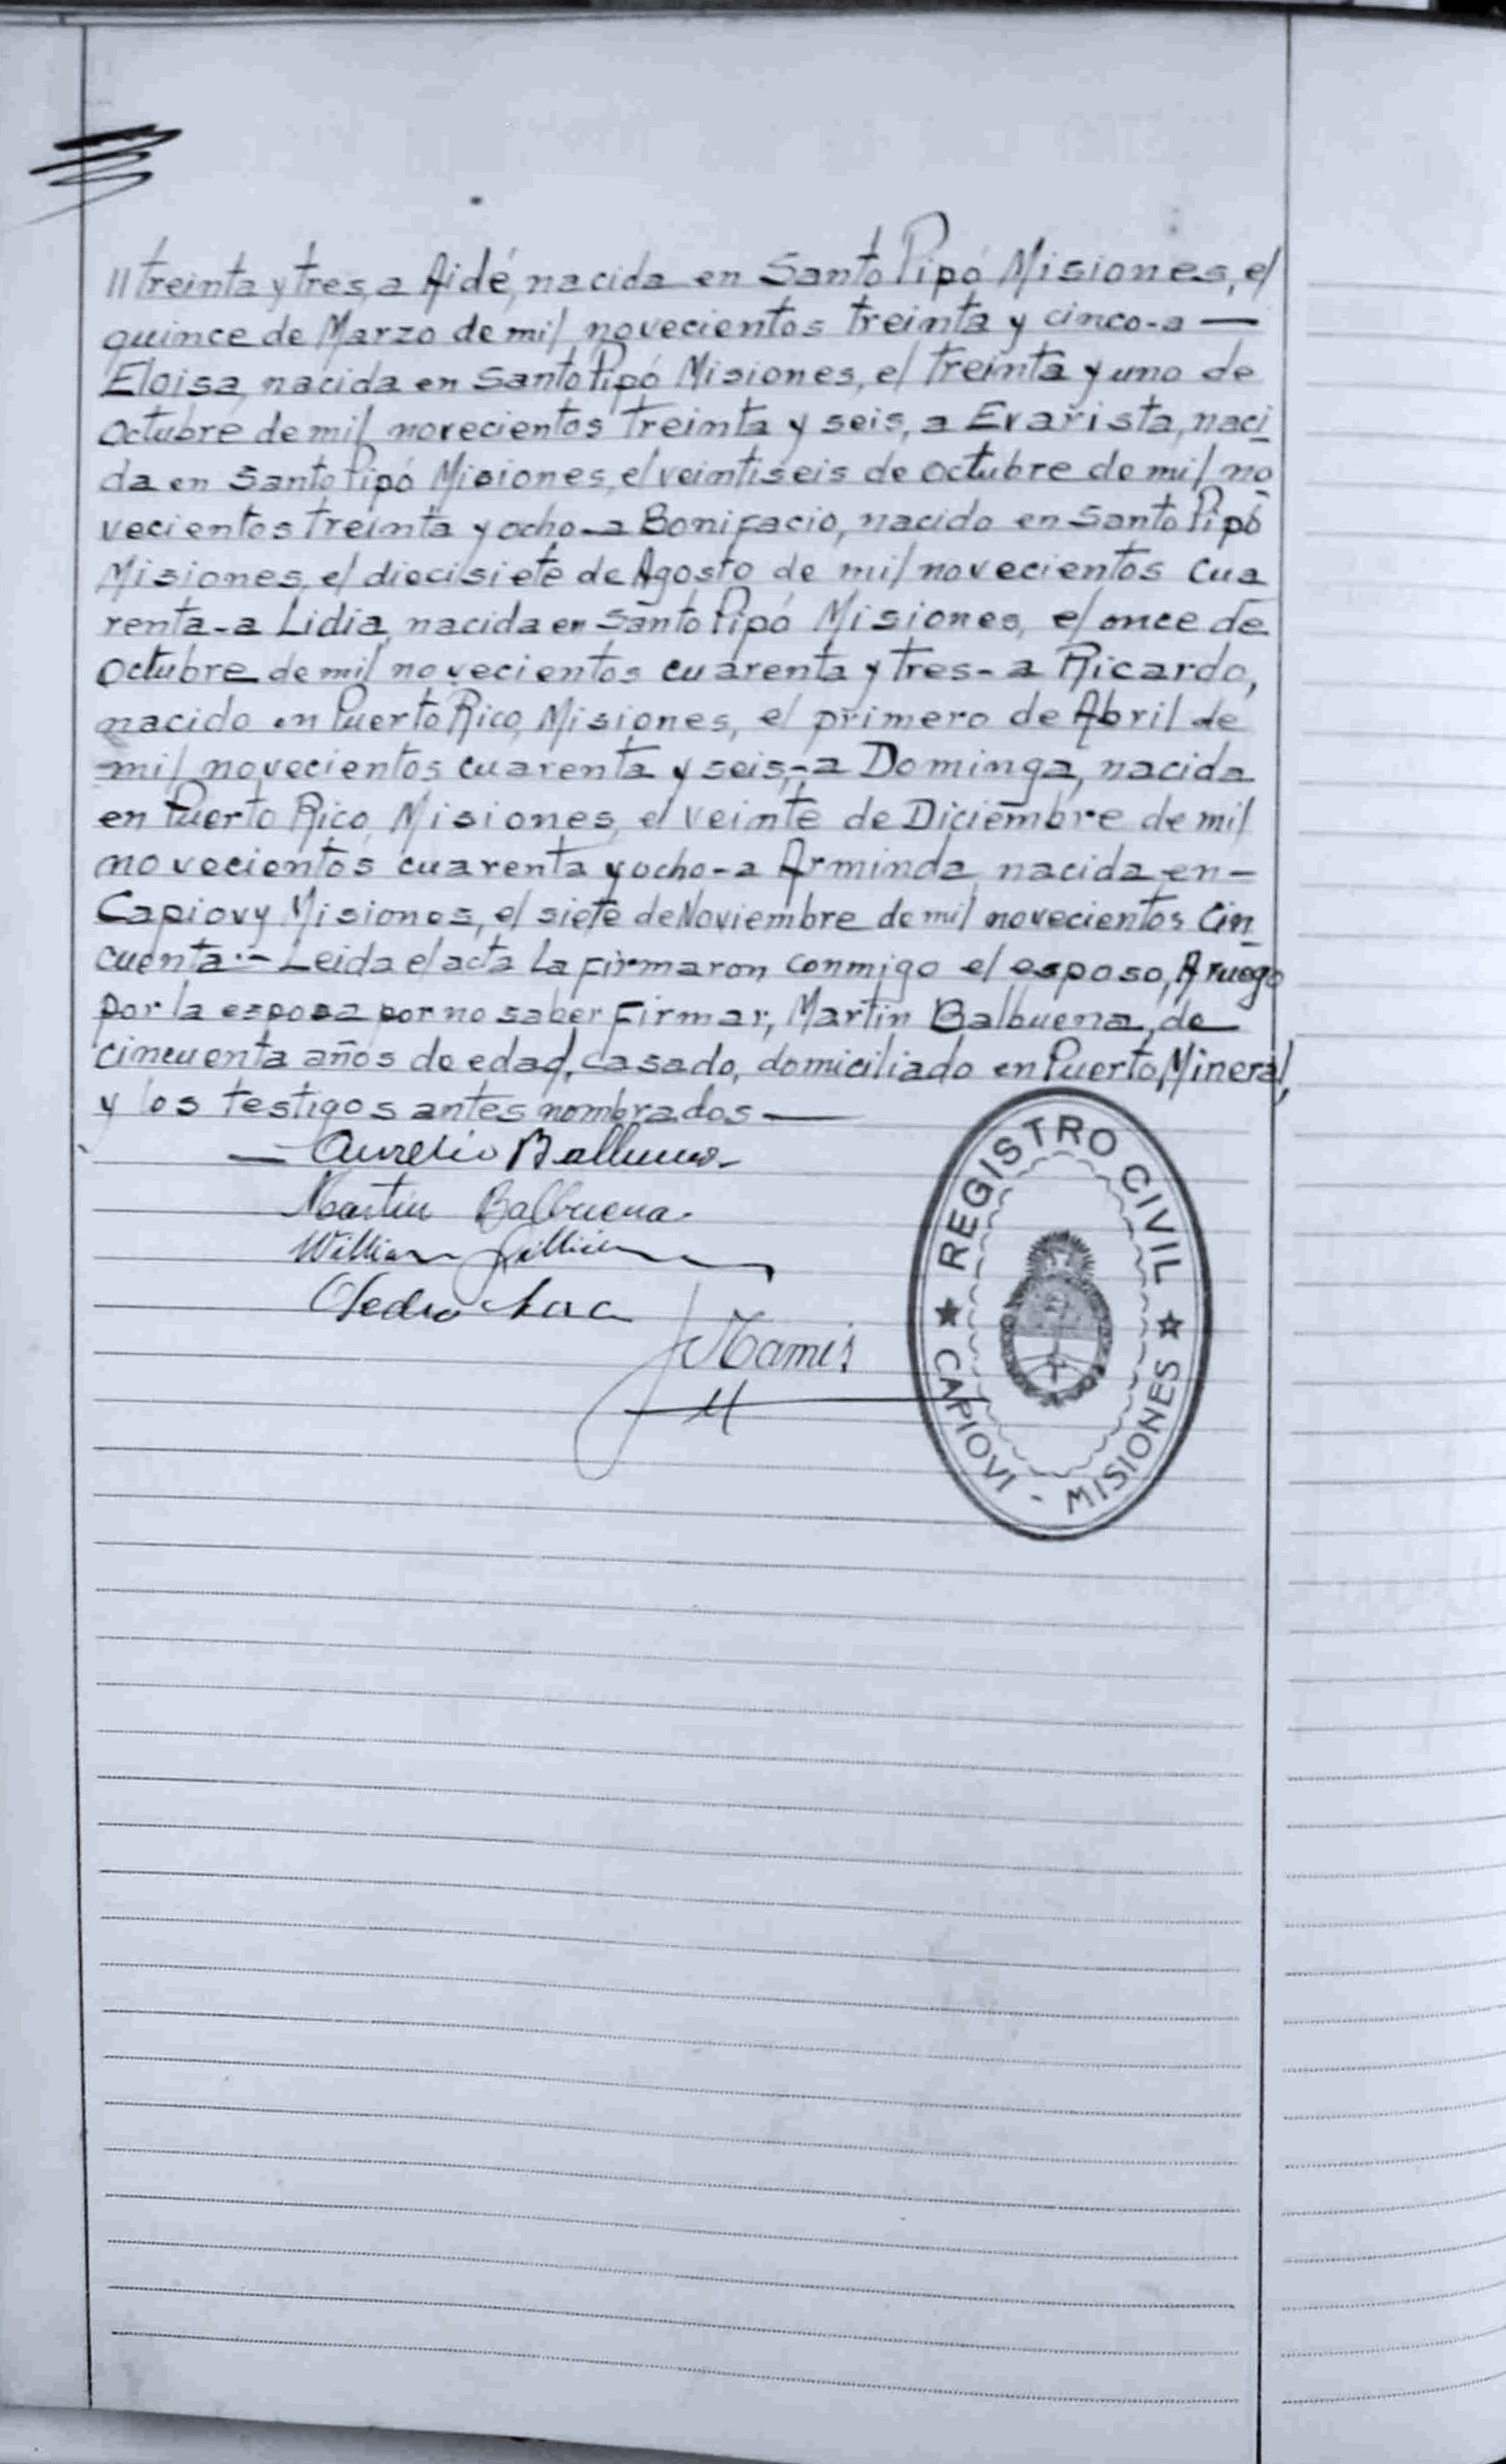 // treinta y tres, a Aidé, nacida en Santo Pipó Misiones, el
quince de Marzo de mil novecientos treinta y cinco-a —
Eloisa, nacida en Santo Pipó Misiones, el treinta y uno de
Octubre de mil novecientos treinta y seis, a Evarista, naci
da en Santo Pipó Misiones, el veintiseis de octubre de mil no
vecientos treinta y ocho-a Bonifacio, nacido en Santo Pipó
Misiones, el diecisiete de Agosto de mil novecientos cua
renta-a Lidia, nacida en Santo Pipó Misiones, el once de
Octubre de mil novecientos cuarenta y tres-a Ricardo,
nacido en Puerto Rico, Misiones, el primero de Abril de
mil novecientos cuarenta y seis,-a Dominga, nacida
en Puerto Rico, Misiones, el veinte de Diciembre de mil
novecientos cuarenta y ocho-a Arminda, nacida en-
Capiovy Misiones, el siete de Noviembre de mil novecientos Cin
cuenta.- Leida el acta la firmaron conmigo el esposo, A ruego
por la esposa por no saber firmar, Martin Balbuena, de
cincuenta años de edad, casado, domiciliado en Puerto Mineral,
y los testigos antes nombrados —
— Aurelio Balbuena
Martin Balbuena.
William
Pedro
REGISTRO CIVIL
CAPIOVI - MISIONES